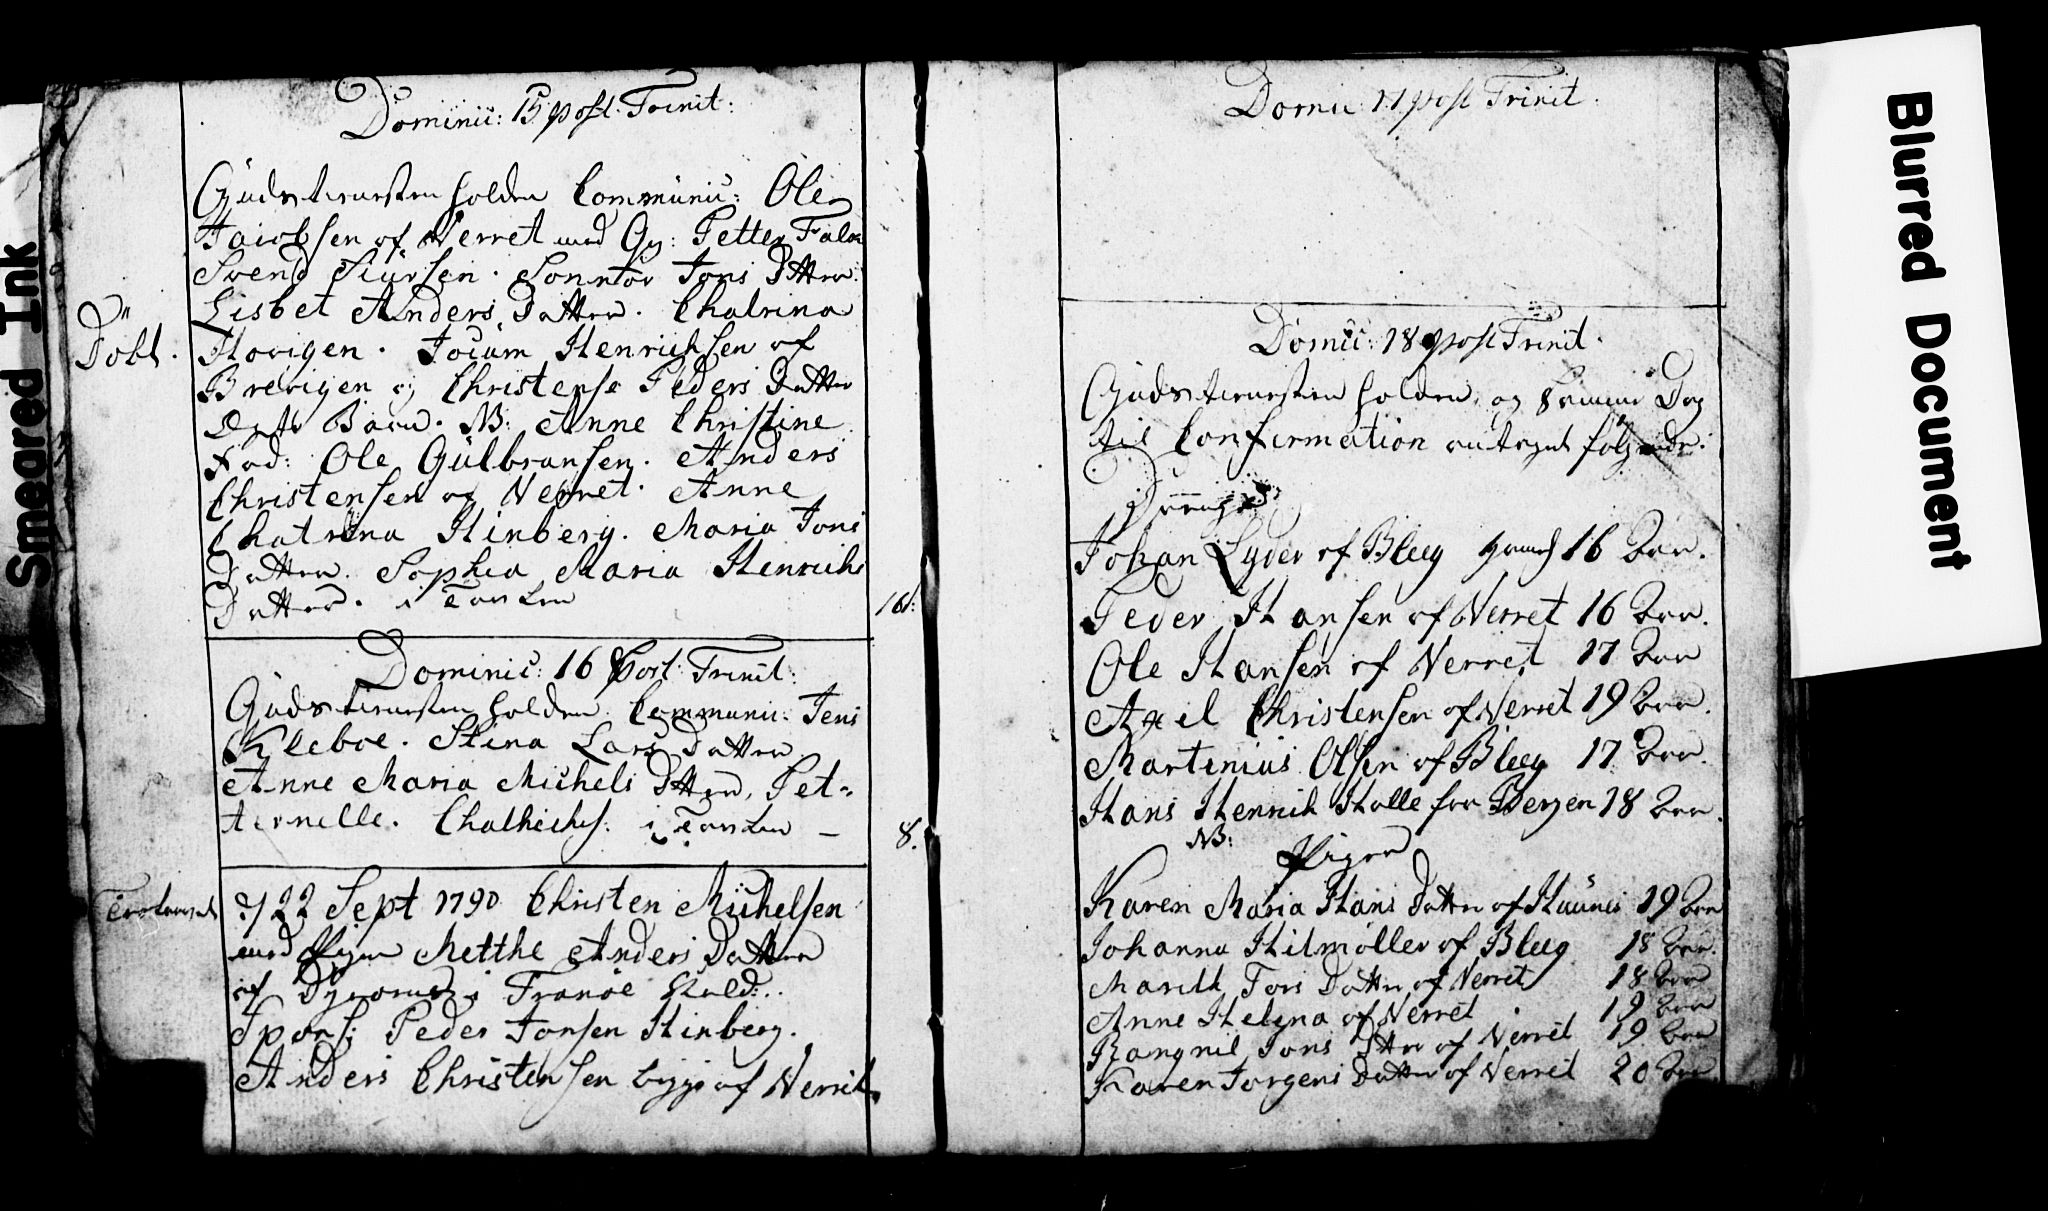 Dominic: 15 post: Trinit:
Gudstienesten holden Communic: Ole
Jacobsen af Verret med Qv: Petter Falch
Svend Siursen. Sonneton Jons Datter.
Lisbet Anders Datter. Chatrina
Døbt.
Hovigen. Jocum Henrichsen af
Brevigen og Christense Peders Datter
Barn. NB: Anne Christine
Fad: Ole Gulbransen. Anders
Christensen af Verret. Anne
Chatrina Hinberg. Maria Jons
Datter. Sophia Maria Henrichs
Datter. i Tavlen 16s:
Dominic: 16 Post: Trinit:
Gudstienesten holden. Communic: Jens
Kleboe. Stina Lars Datter
Anne Maria Michels Datter, Pet-
ternelle. i Tavlen – 8.
Trolovet
d/22 Sept 1790 Christen Michelsen
med Pigen Metthe Anders Datter
af i Tranøe Gield:
Spons: Peder Jonsen Hinberg.
Anders Christensen begge af Verret.
Domic 17 post Trinit.
Domic: 18 post Trinit.
Gudstienesten holden, og samme Dag
til Confirmation antaget følgende:
Drenge
Johan Lyder af Bleeg 16 Aar.
Peder Hansen af Verret 16 Aar.
Ole Hansen af Verret 17 Aar
Axel Christensen af Verret 19 Aar.
Martinius Olsen af Bleeg 17 Aar.
Hans Henrik Halle fra Bergen 18 Aar.
NB:
Piger
Karen Maria Hans Datter af Haünes 19 Aar
Johanna Hilmøller af Bleeg 18 Aar.
Marith Tors Datter af Verret 18 Aar
Anne Helena af Verret 19 Aar
Rangnil Jons Datter af Verret 19 Aar
Karen Jorgens Datter af Verret 20 Aar
Smeared Ink
Blurred Document